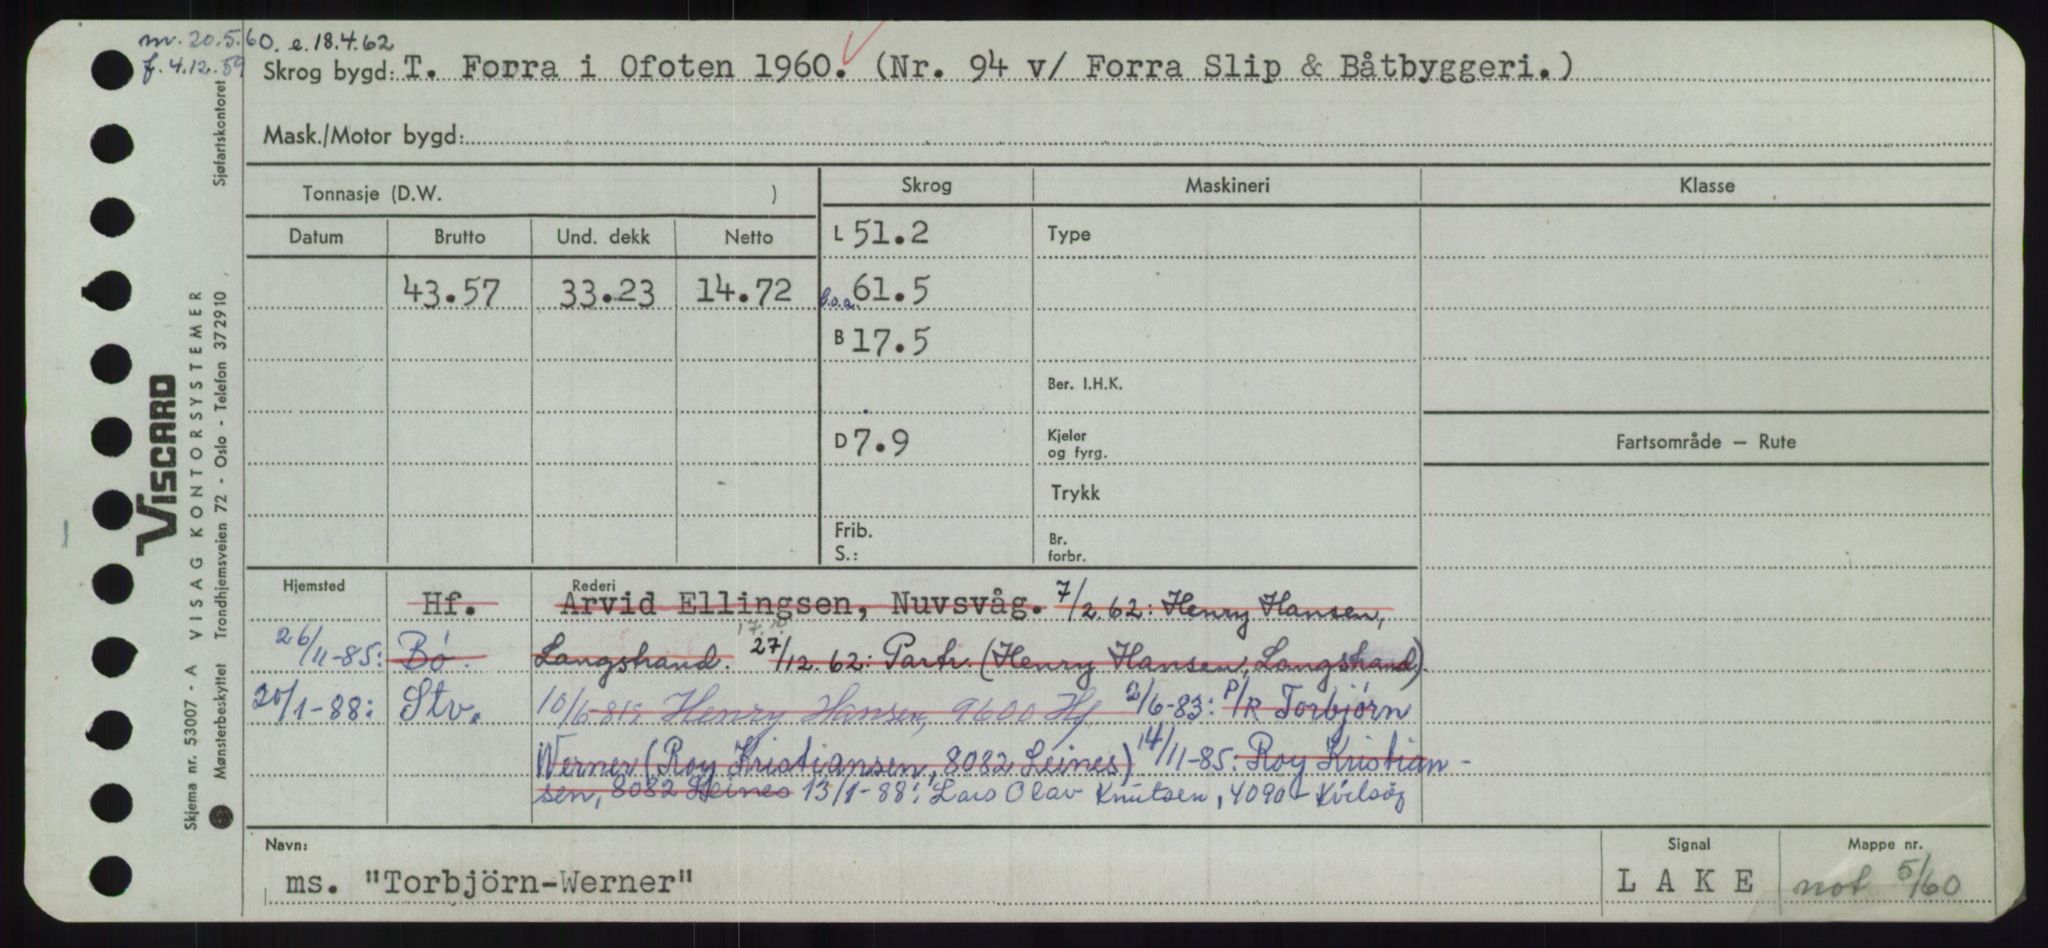 m. 20.5.60. e. 18.4.62
f. 4.12.59
Skrog bygd: T. Forra i Ofoten 1960. (Nr. 94 v/ Forra Slip & Båtbyggeri.)
Mask./Motor bygd:
Tonnasje (D.W. )
Skrog Maskineri Klasse
Datum Brutto Und. dekk Netto
L 51.2 Type
43.57 33.23 14.72
l.o.a. 61.5
B 17.5
Ber. I.H.K.
D 7.9 Kjeler
og fyrg.
Fartsområde — Rute
Trykk
Frib.
S.:
Br.
forbr.
Hjemsted Rederi
Hf. Arvid Ellingsen, Nuvsvåg. 7/2.62: Henry Hansen,
26/11-85: Bö. Langstrand. 27/12.62: Partr. (Henry Hansen, Langstrand).
20/1-88: Stv. 10/6-81: Henry Hansen, 9600 Hf 2/6-83: P/R Torbjørn
Werner (Roy Kristiansen, 8082 Leines) 14/11-85: Roy Kristian-
sen, 8082 Leines 13/1-88: Lars Olav Knutsen, 4090-
Navn: Signal Mappe nr.
ms. "Torbjörn-Werner" LAKE not 5/60
VISCARD
Skjema nr. 53007 - A VISAG KONTORSYSTEMER
Mønsterbeskyttet Trondhjemsveien 72 - Oslo - Telefon 372910
Sjøfartskontoret